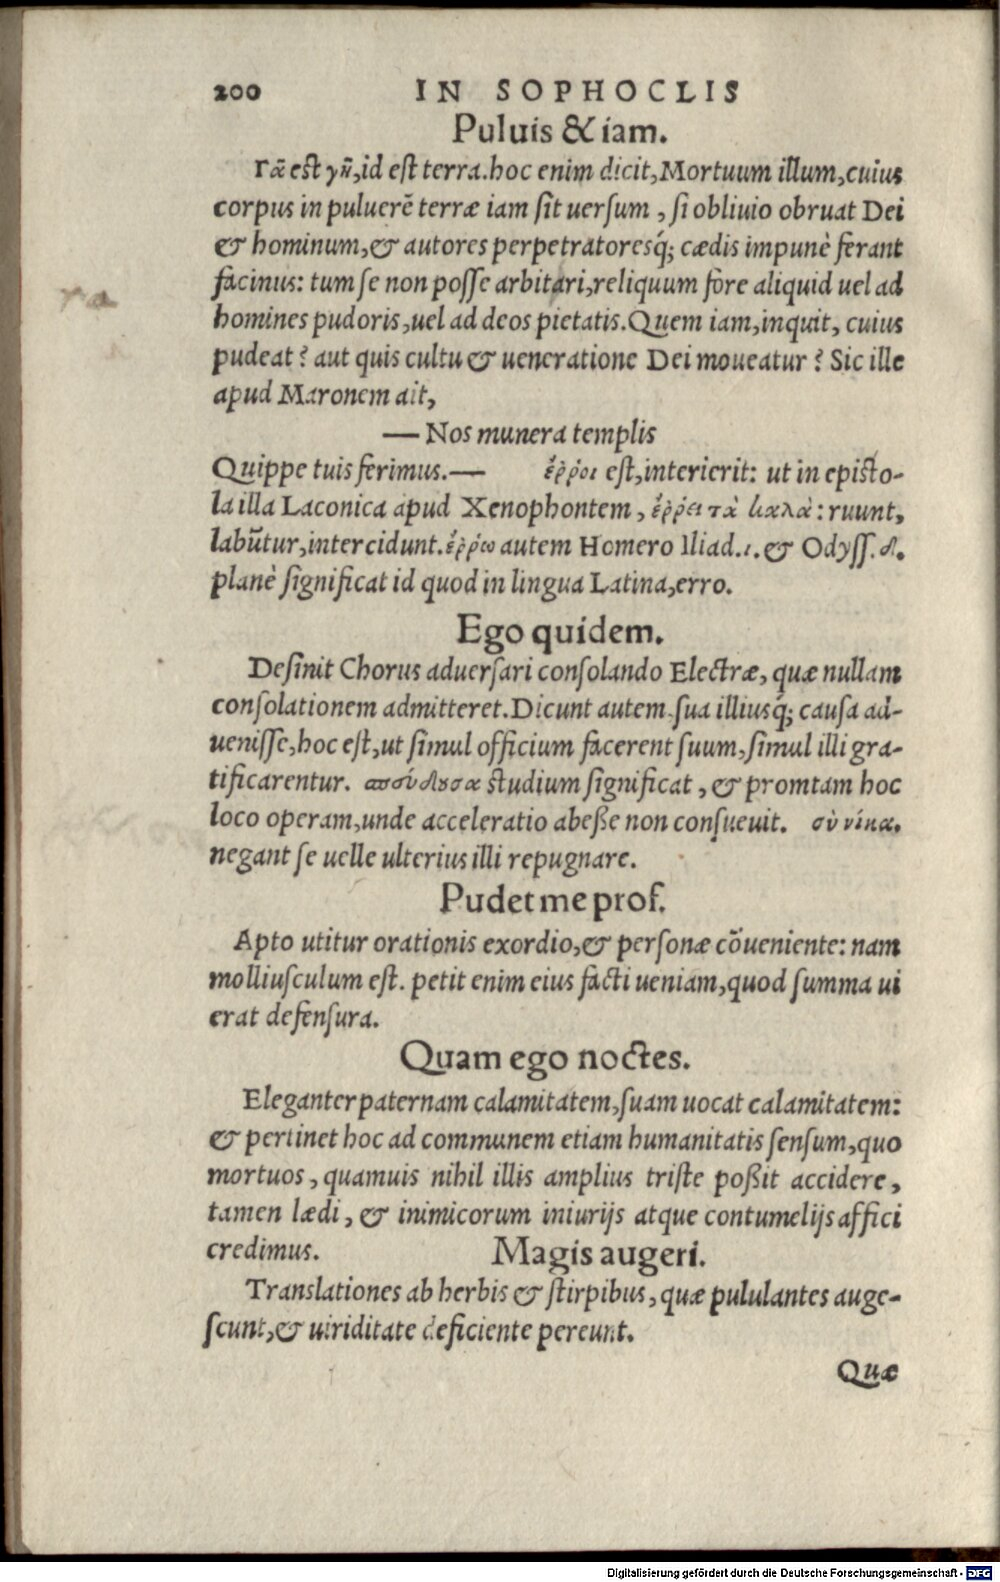 200 IN SOPHOCLIS
Puluis & iam.
Γᾶ est γῆ, id est terra. hoc enim dicit, Mortuum illum, cuius
corpus in puluerē terræ iam sit uersum, si obliuio obruat Dei
& hominum, & autores perpetratoresq́; cædis impunè ferant
facinus: tum se non posse arbitari, reliquum fore aliquid uel ad
homines pudoris, uel ad deos pietatis. Quem iam, inquit, cuius
pudeat? aut quis cultu & ueneratione Dei moueatur? Sic ille
apud Maronem ait,
— Nos munera templis
Quippe tuis ferimus. — ἔῤῥοι est, interierit: ut in episto-
la illa Laconica apud Xenophontem, ἔῤῥει τὰ καλὰ: ruunt,
labūtur, intercidunt. ἔῤῥω autem Homero Iliad.ι. & Odyss.δ.
planè significat id quod in lingua Latina, erro.
Ego quidem.
Desinit Chorus aduersari consolando Electræ, quæ nullam
consolationem admitteret. Dicunt autem sua illiusq́; causa ad-
uenisse, hoc est, ut simul officium facerent suum, simul illi gra-
tificarentur. σπεύδουσα studium significat, & promtam hoc
loco operam, unde acceleratio abeße non consueuit. σὺ νίκα.
negant se uelle ulterius illi repugnare.
Pudet me prof.
Apto utitur orationis exordio, & personæ cōueniente: nam
molliusculum est. petit enim eius facti ueniam, quod summa ui
erat defensura.
Quam ego noctes.
Eleganter paternam calamitatem, suam uocat calamitatem:
& pertinet hoc ad communem etiam humanitatis sensum, quo
mortuos, quamuis nihil illis amplius triste poßit accidere,
tamen lædi, & inimicorum iniurijs atque contumelijs affici
credimus. Magis augeri.
Translationes ab herbis & stirpibus, quæ pululantes auge-
scunt, & uiriditate deficiente pereunt.
Quæ
Digitalisierung gefördert durch die Deutsche Forschungsgemeinschaft - DFG